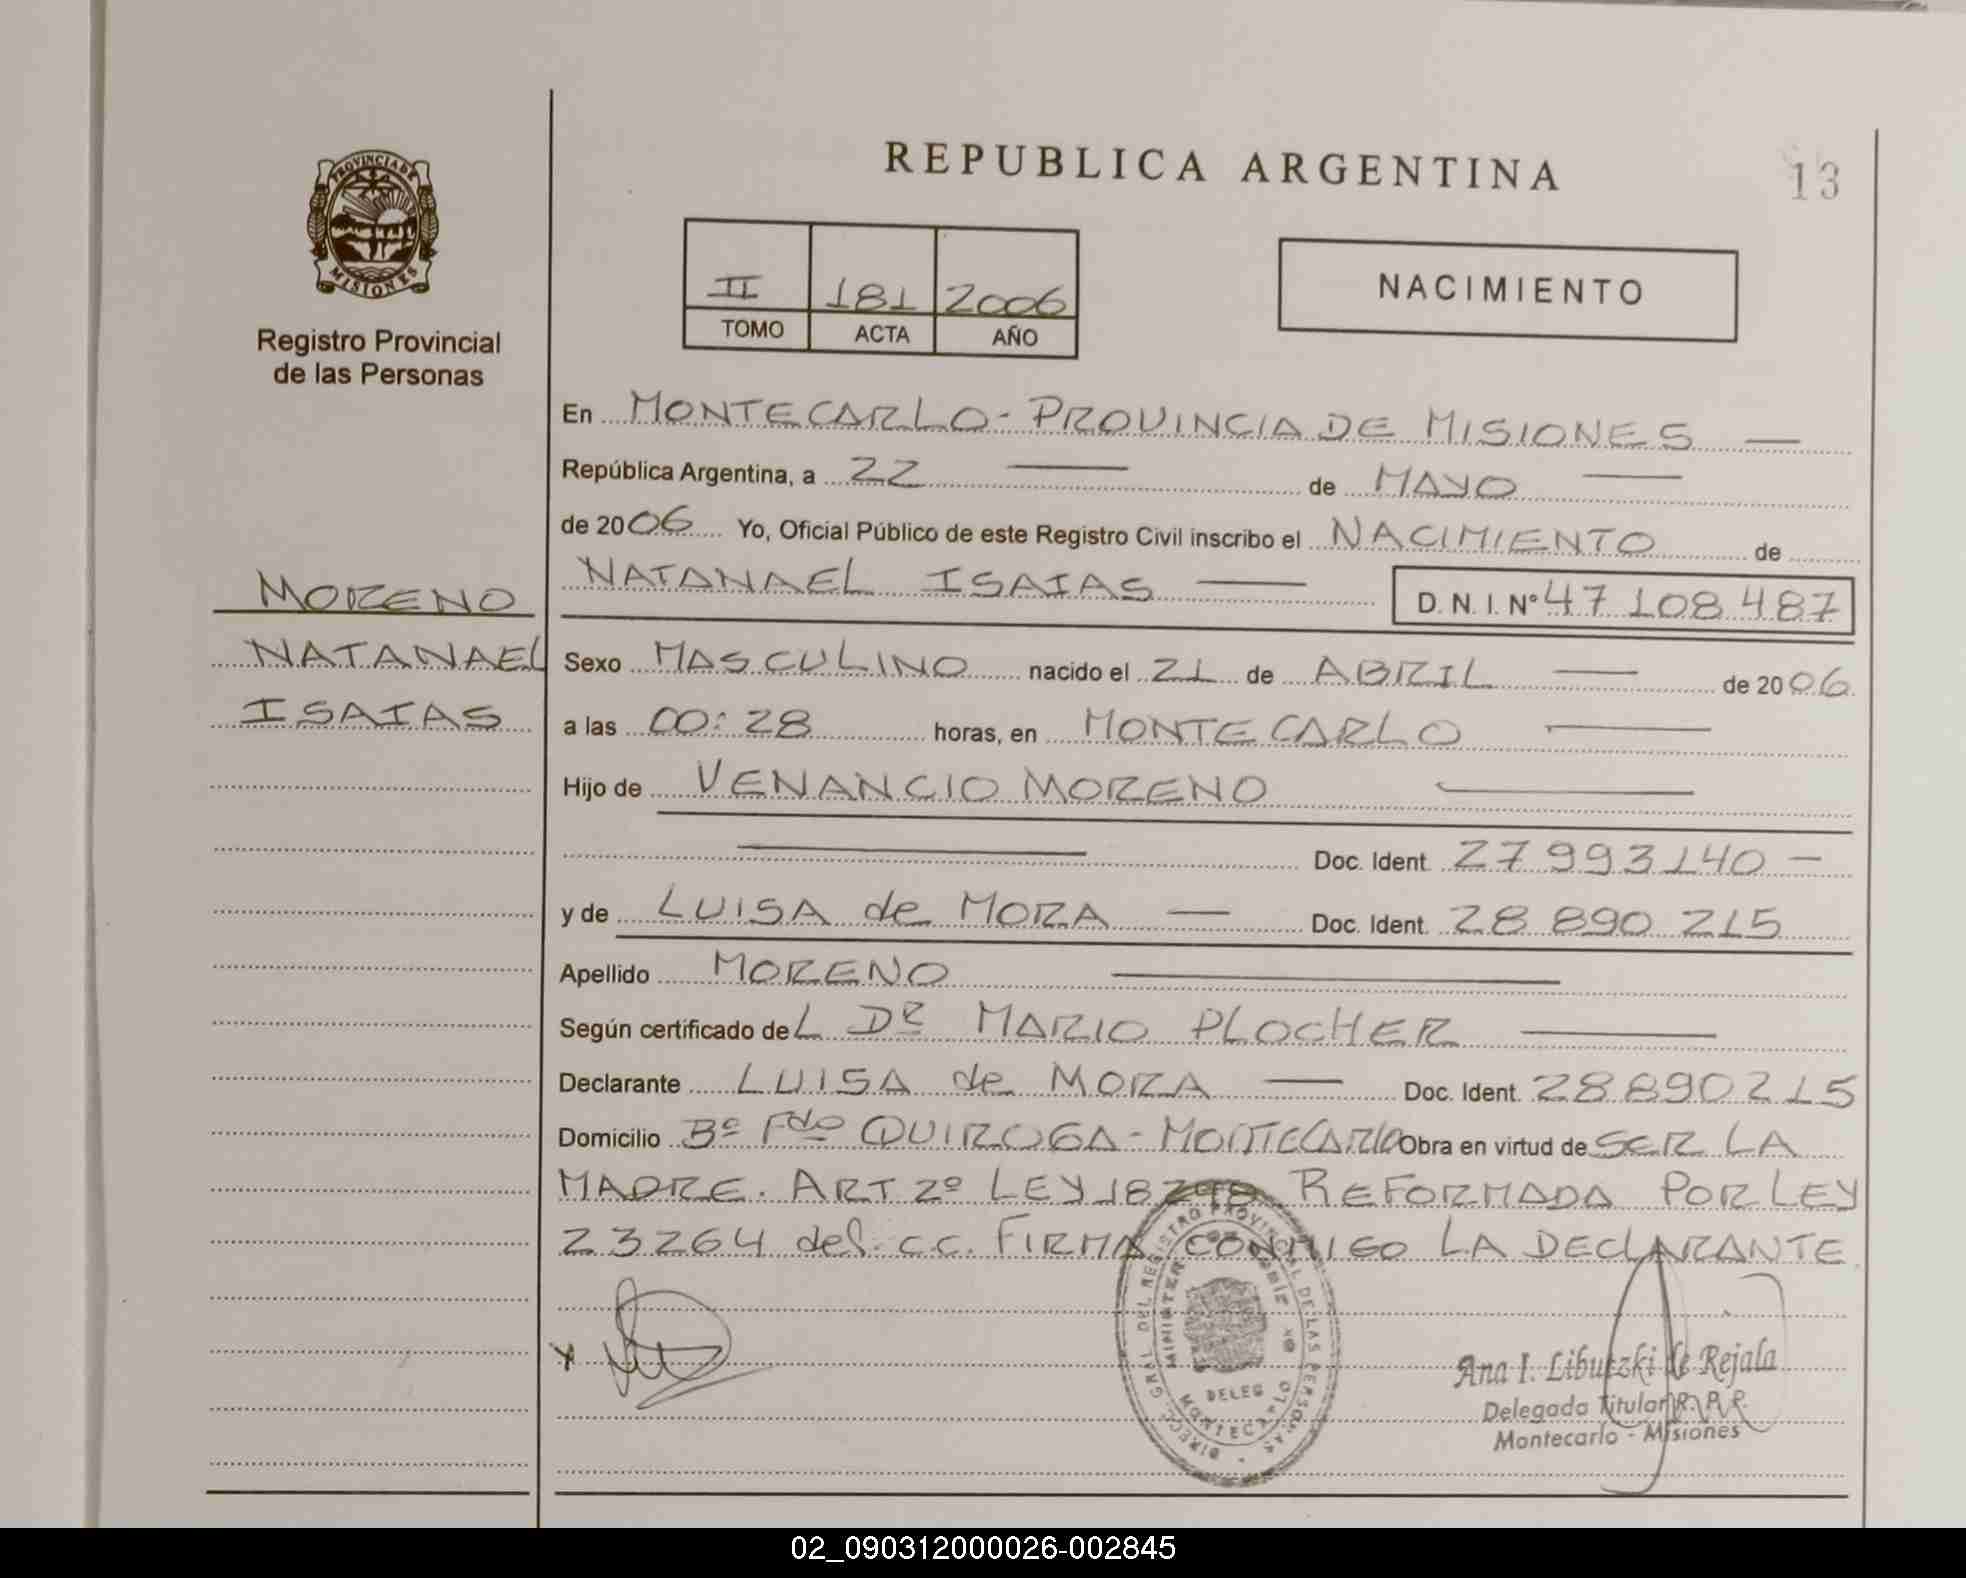 REPUBLICA ARGENTINA
13
PROVINCIA DE
MISIONES
Registro Provincial
de las Personas
II 181 2006
TOMO ACTA AÑO
NACIMIENTO
En MONTECARLO - PROVINCIA DE MISIONES —
República Argentina, a 22 — de MAYO —
de 2006 Yo, Oficial Público de este Registro Civil inscribo el NACIMIENTO de
NATANAEL ISAIAS — D. N. I. Nº 47 108 487
MORENO
NATANAEL
ISAIAS
Sexo MASCULINO nacido el 21 de ABRIL — de 2006
a las 00:28 horas, en MONTECARLO —
Hijo de VENANCIO MORENO —
— Doc. Ident. 27 993 140 —
y de LUISA de MORA — Doc. Ident. 28 890 215
Apellido MORENO —
Según certificado deL Dr MARIO PLOCHER —
Declarante LUISA de MORA — Doc. Ident. 28 890 215
Domicilio Bº Fdo QUIROGA - MONTECARLO Obra en virtud de SER LA
MADRE. ART 2º LEY 18248 REFORMADA POR LEY
23264 del C.C. FIRMA CONMIGO LA DECLARANTE
DIRECC. GRAL. DEL REGISTRO PROVINCIAL DE LAS PERSONAS
DELEG
MONTECARLO
Ana I. Libutzki de Rejala
Delegada Titular R. P. P.
Montecarlo - Misiones
02_090312000026-002845